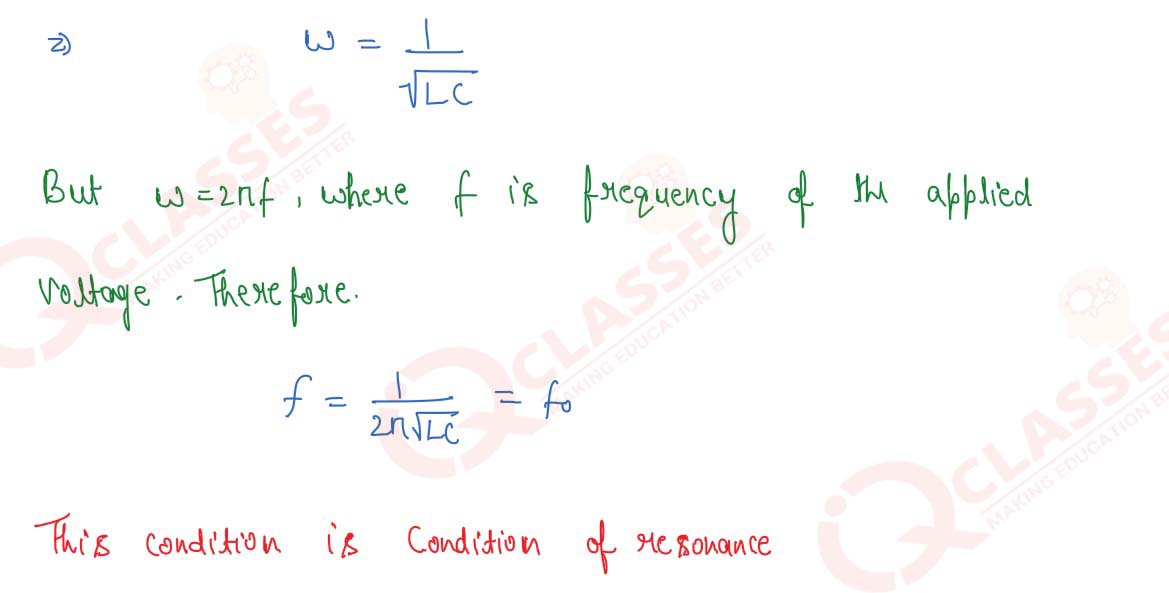 ⇒ ω = 1/√LC
But ω=2πf, where f is frequency of the applied
voltage. Therefore.
f = 1/2π√LC = f₀
This condition is Condition of resonance
IQ CLASSES
MAKING EDUCATION BETTER
IQ CLASSES
MAKING EDUCATION BETTER
IQ CLASSES
MAKING EDUCATION BETTER